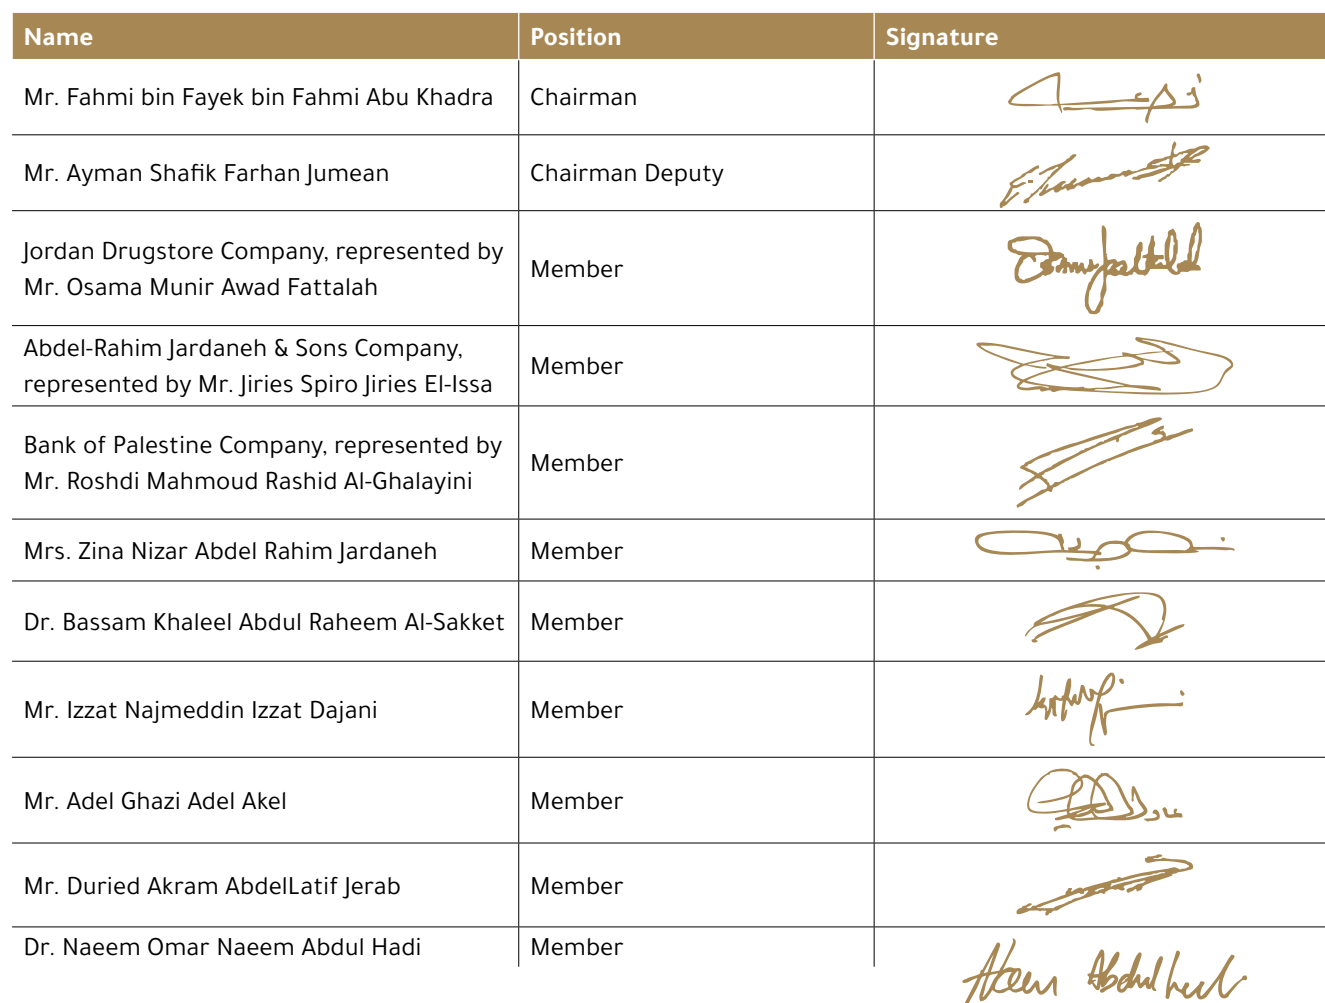 Name Position Signature
Mr. Fahmi bin Fayek bin Fahmi Abu Khadra Chairman
Mr. Ayman Shafik Farhan Jumean Chairman Deputy
Jordan Drugstore Company, represented by
Mr. Osama Munir Awad Fattalah Member
Abdel-Rahim Jardaneh & Sons Company,
represented by Mr. Jiries Spiro Jiries El-Issa Member
Bank of Palestine Company, represented by
Mr. Roshdi Mahmoud Rashid Al-Ghalayini Member
Mrs. Zina Nizar Abdel Rahim Jardaneh Member
Dr. Bassam Khaleel Abdul Raheem Al-Sakket Member
Mr. Izzat Najmeddin Izzat Dajani Member
Mr. Adel Ghazi Adel Akel Member
Mr. Duried Akram AbdelLatif Jerab Member
Dr. Naeem Omar Naeem Abdul Hadi Member